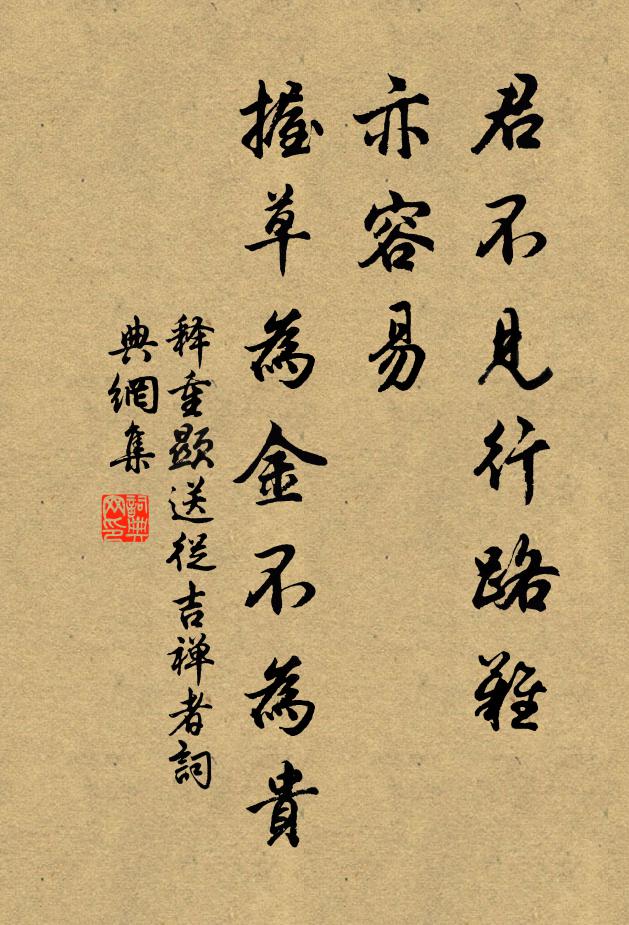 君不見行路難
亦容易
握草為金不為貴
释重顯送從吉禅者詞
典網集
詞典
网印